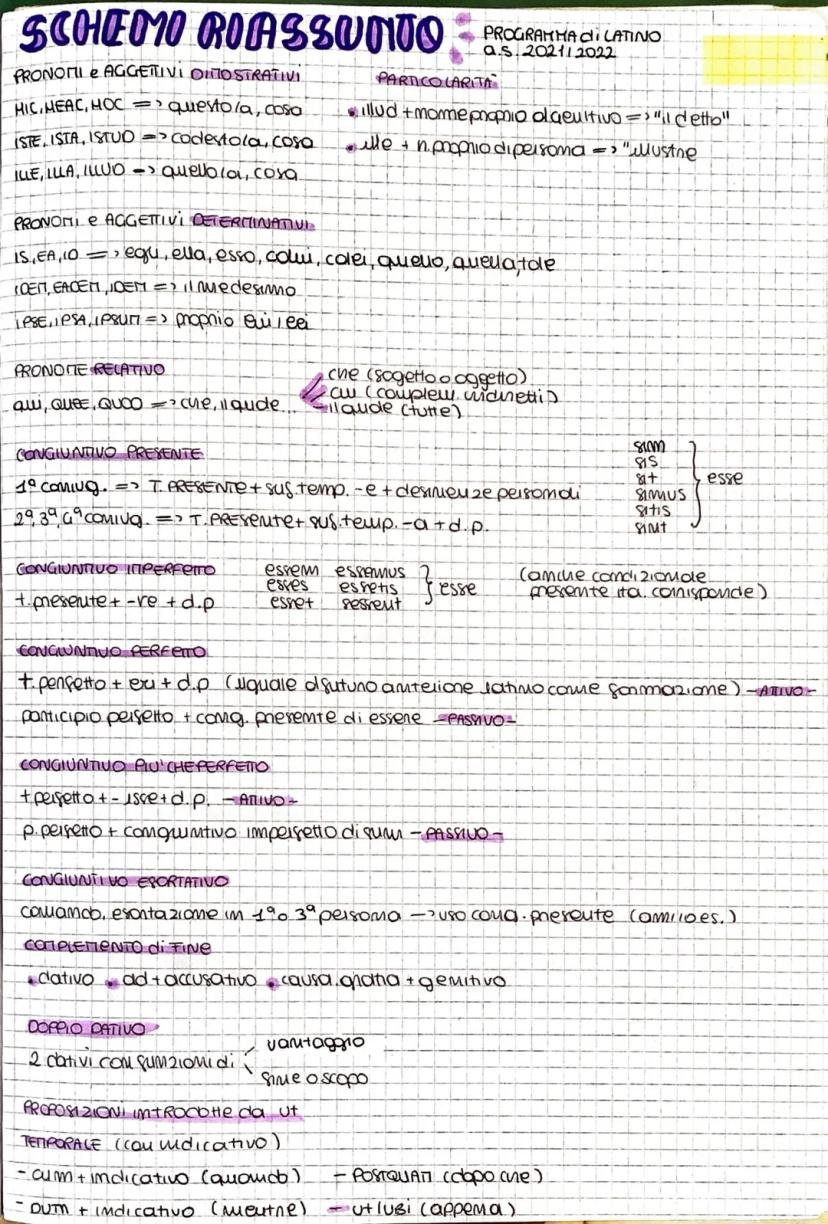 SCHEMI RIASSUNTO
PROGRAMMA di LATINO
a.s. 2021/2022
PRONOMI e AGGETTIVI DIMOSTRATIVI
PARTICOLARITÀ
HIC, HEAC, HOC => questo/a, cosa
• illud + nome proprio al genitivo => "il detto"
ISTE, ISTA, ISTUD => codesto/a, cosa
• ille + n. proprio di persona => "illustre
ILLE, ILLA, ILLUD -> quello/a, cosa
PRONOMI e AGGETTIVI DETERMINATIVI
IS, EA, ID => egli, ella, esso, colui, colei, quello, quella, tale
IDEM, EADEM, IDEM => il medesimo
IPSE, IPSA, IPSUM => proprio lui/lei
PRONOME RELATIVO
che (sogetto o oggetto)
qui, QUAE, QUOD => che, il quale...
cui (complem. indiretti)
il quale (tutte)
CONGIUNTIVO PRESENTE
1ª coniug. => T. PRESENTE + suf. temp. -e + desinenze personali
2ª, 3ª, 4ª coniug. => T. PRESENTE + suf. temp. -a + d.p.
sim
sis
sit
simus
sitis
sint
esse
CONGIUNTIVO IMPERFETTO
t. presente + -re + d.p
essem essemus
esses essetis
esset essent
esse
(anche condizionale
presente ita. corrisponde)
CONGIUNTIVO PERFETTO
t. perfetto + eri + d.p (uguale al futuro anteriore latino come formazione) -ATTIVO-
participio perfetto + cong. presente di essere -PASSIVO-
CONGIUNTIVO PIU' CHE PERFETTO
t perfetto + -isse + d.p. -ATTIVO-
p. perfetto + congiuntivo imperfetto di sum -PASSIVO-
CONGIUNTIVO ESORTATIVO
comando, esortazione in 1ª o 3ª persona -> uso cong. presente
COMPLEMENTO di FINE
• dativo • ad + accusativo • causa, gratia + genitivo
DOPPIO DATIVO
2 dativi con funzioni di
vantaggio
fine o scopo
PROPOSIZIONI INTRODOTTE da ut
TEMPORALE (con indicativo)
- cum + indicativo (quando) - POSTQUAM (dopo che)
- DUM + indicativo (mentre) - ut/UBI (appena)